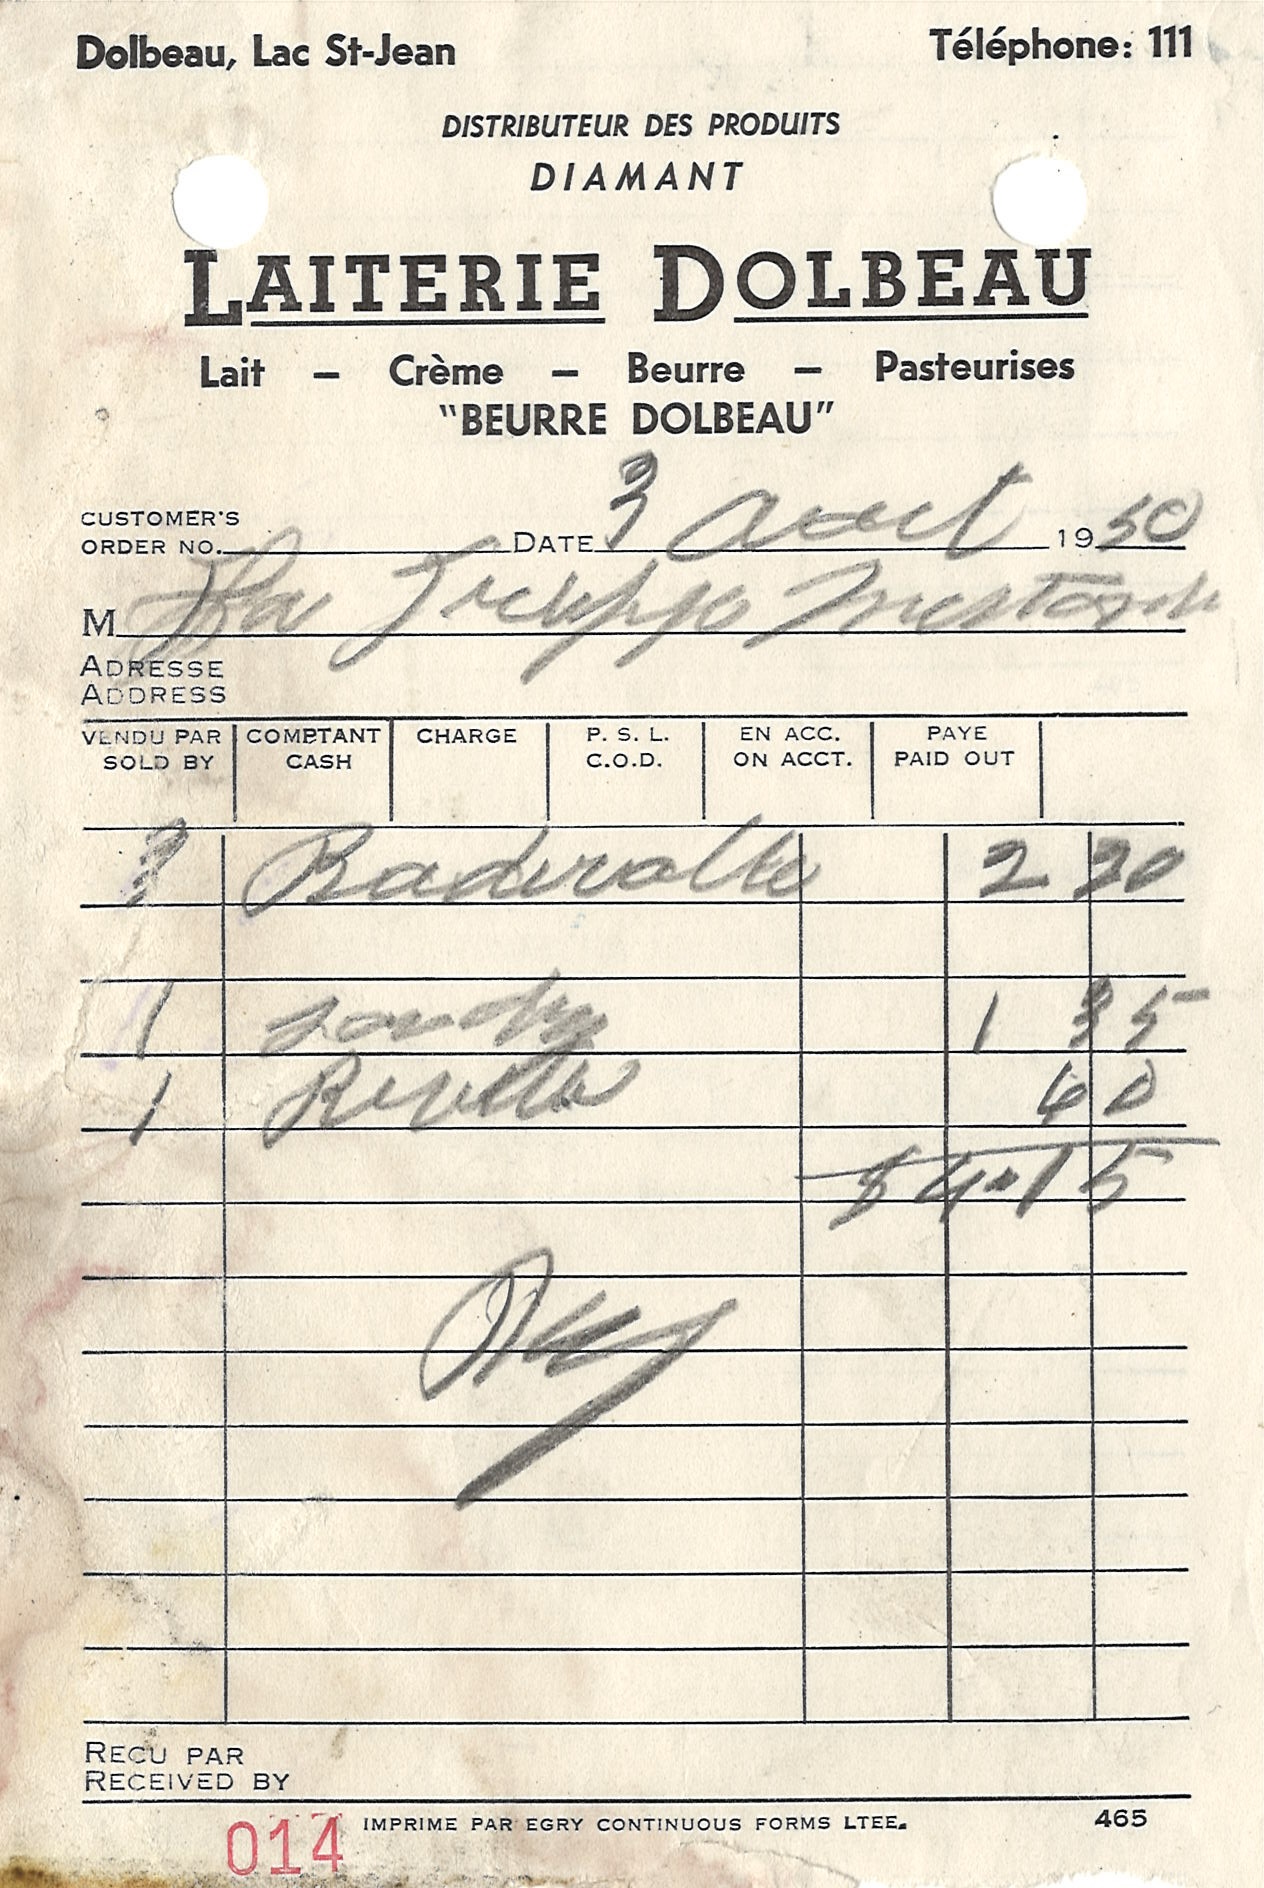 Dolbeau, Lac St-Jean Téléphone: 111
DISTRIBUTEUR DES PRODUITS
DIAMANT
LAITERIE DOLBEAU
Lait – Crème – Beurre – Pasteurises
"BEURRE DOLBEAU"
CUSTOMER'S
ORDER NO. DATE 3 aout 1950
M La
ADRESSE
ADDRESS
VENDU PAR COMPTANT CHARGE P. S. L. EN ACC. PAYE
SOLD BY CASH C.O.D. ON ACCT. PAID OUT
2 20
1 1 35
1 60
$4.15
RECU PAR
RECEIVED BY
014 IMPRIME PAR EGRY CONTINUOUS FORMS LTEE. 465